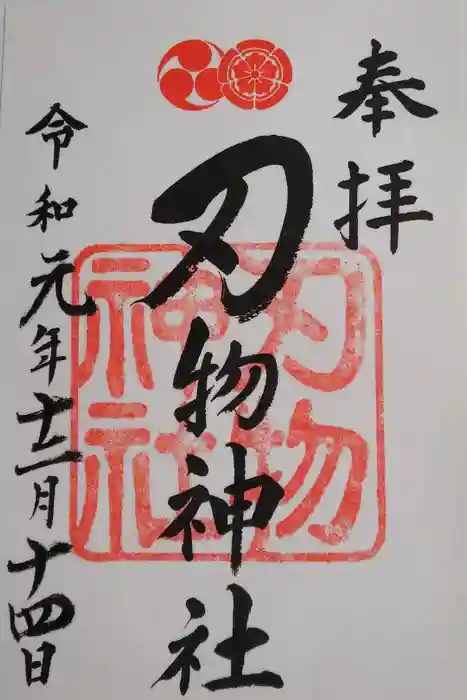 奉拝
刃物神社
刃物
神社
令和元年十二月十四日